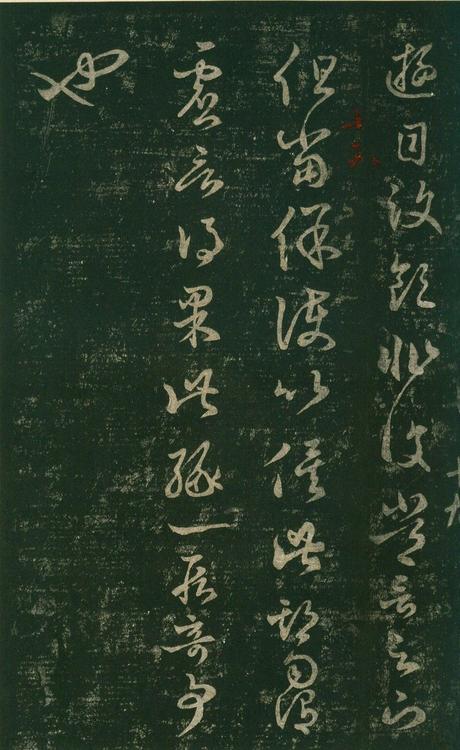 遊目汶領非復常言足下
但當保護以俟此期勿謂
虛言得果此緣一段奇事
也
十九